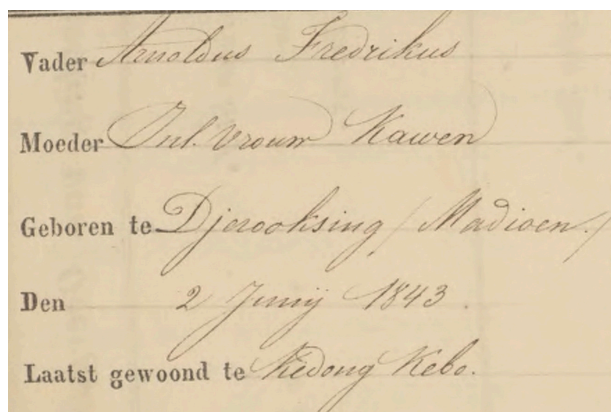 Vader Arnoldus Fredrikus
Moeder Inl. vrouw Kawen
Geboren te Djerooksing / Madioen /
Den 2 Junij 1843.
Laatst gewoond te Kedong Kebo.